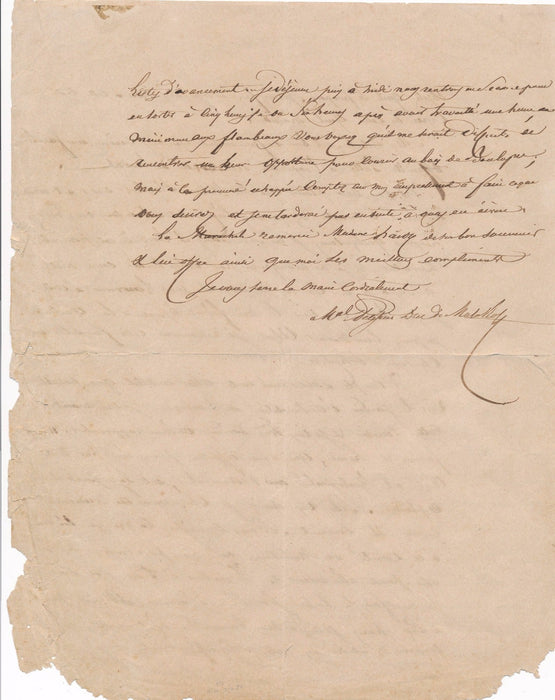 d'avancement. Je déjeune puis à midi nous rentrons en Séance pour
en sortir à cinq heures ou six heures après avoir travaillé une heure au
moins aux flambeaux. Vous voyez qu'il me serait difficile de
rencontrer un heur opportune pour courir au bois de Boulogne;
mais à la première échappée comptez sur mon empressement à faire ce que
vous désirez et je ne tarderai pas ensuite à vous en écrire.
la Maréchale remercie Madame de son bon souvenir
et lui offre ainsi que moi ses meilleurs compliments
Je vous serre la main cordialement
Mal Pélissier Duc de Malakoff